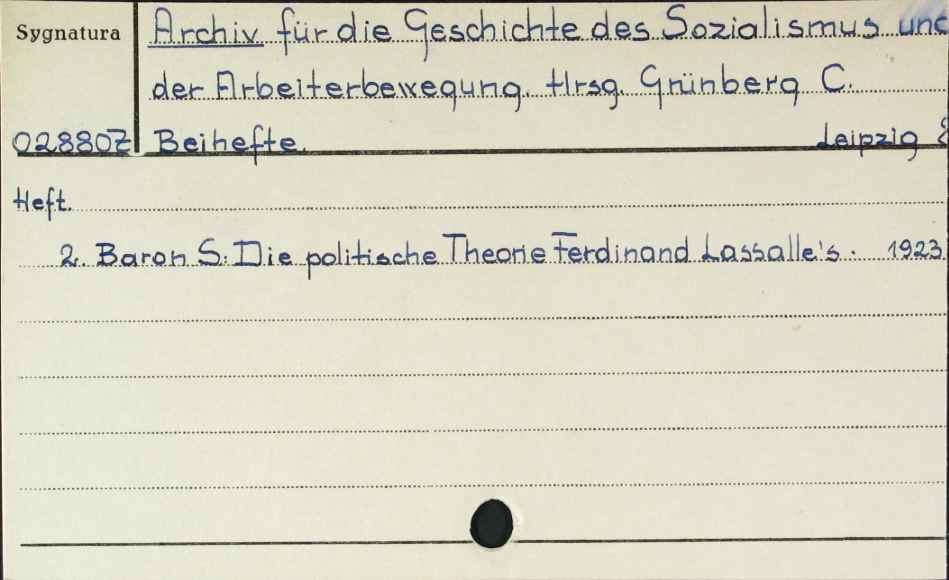 Sygnatura
Archiv für die Geschichte des Sozialismus und
der Arbeiterbewegung. Hrsg. Grünberg C.
02880Z Beihefte. Leipzig
Heft.
2. Baron S: Die politische Theorie Ferdinand Lassalle's. 1923.